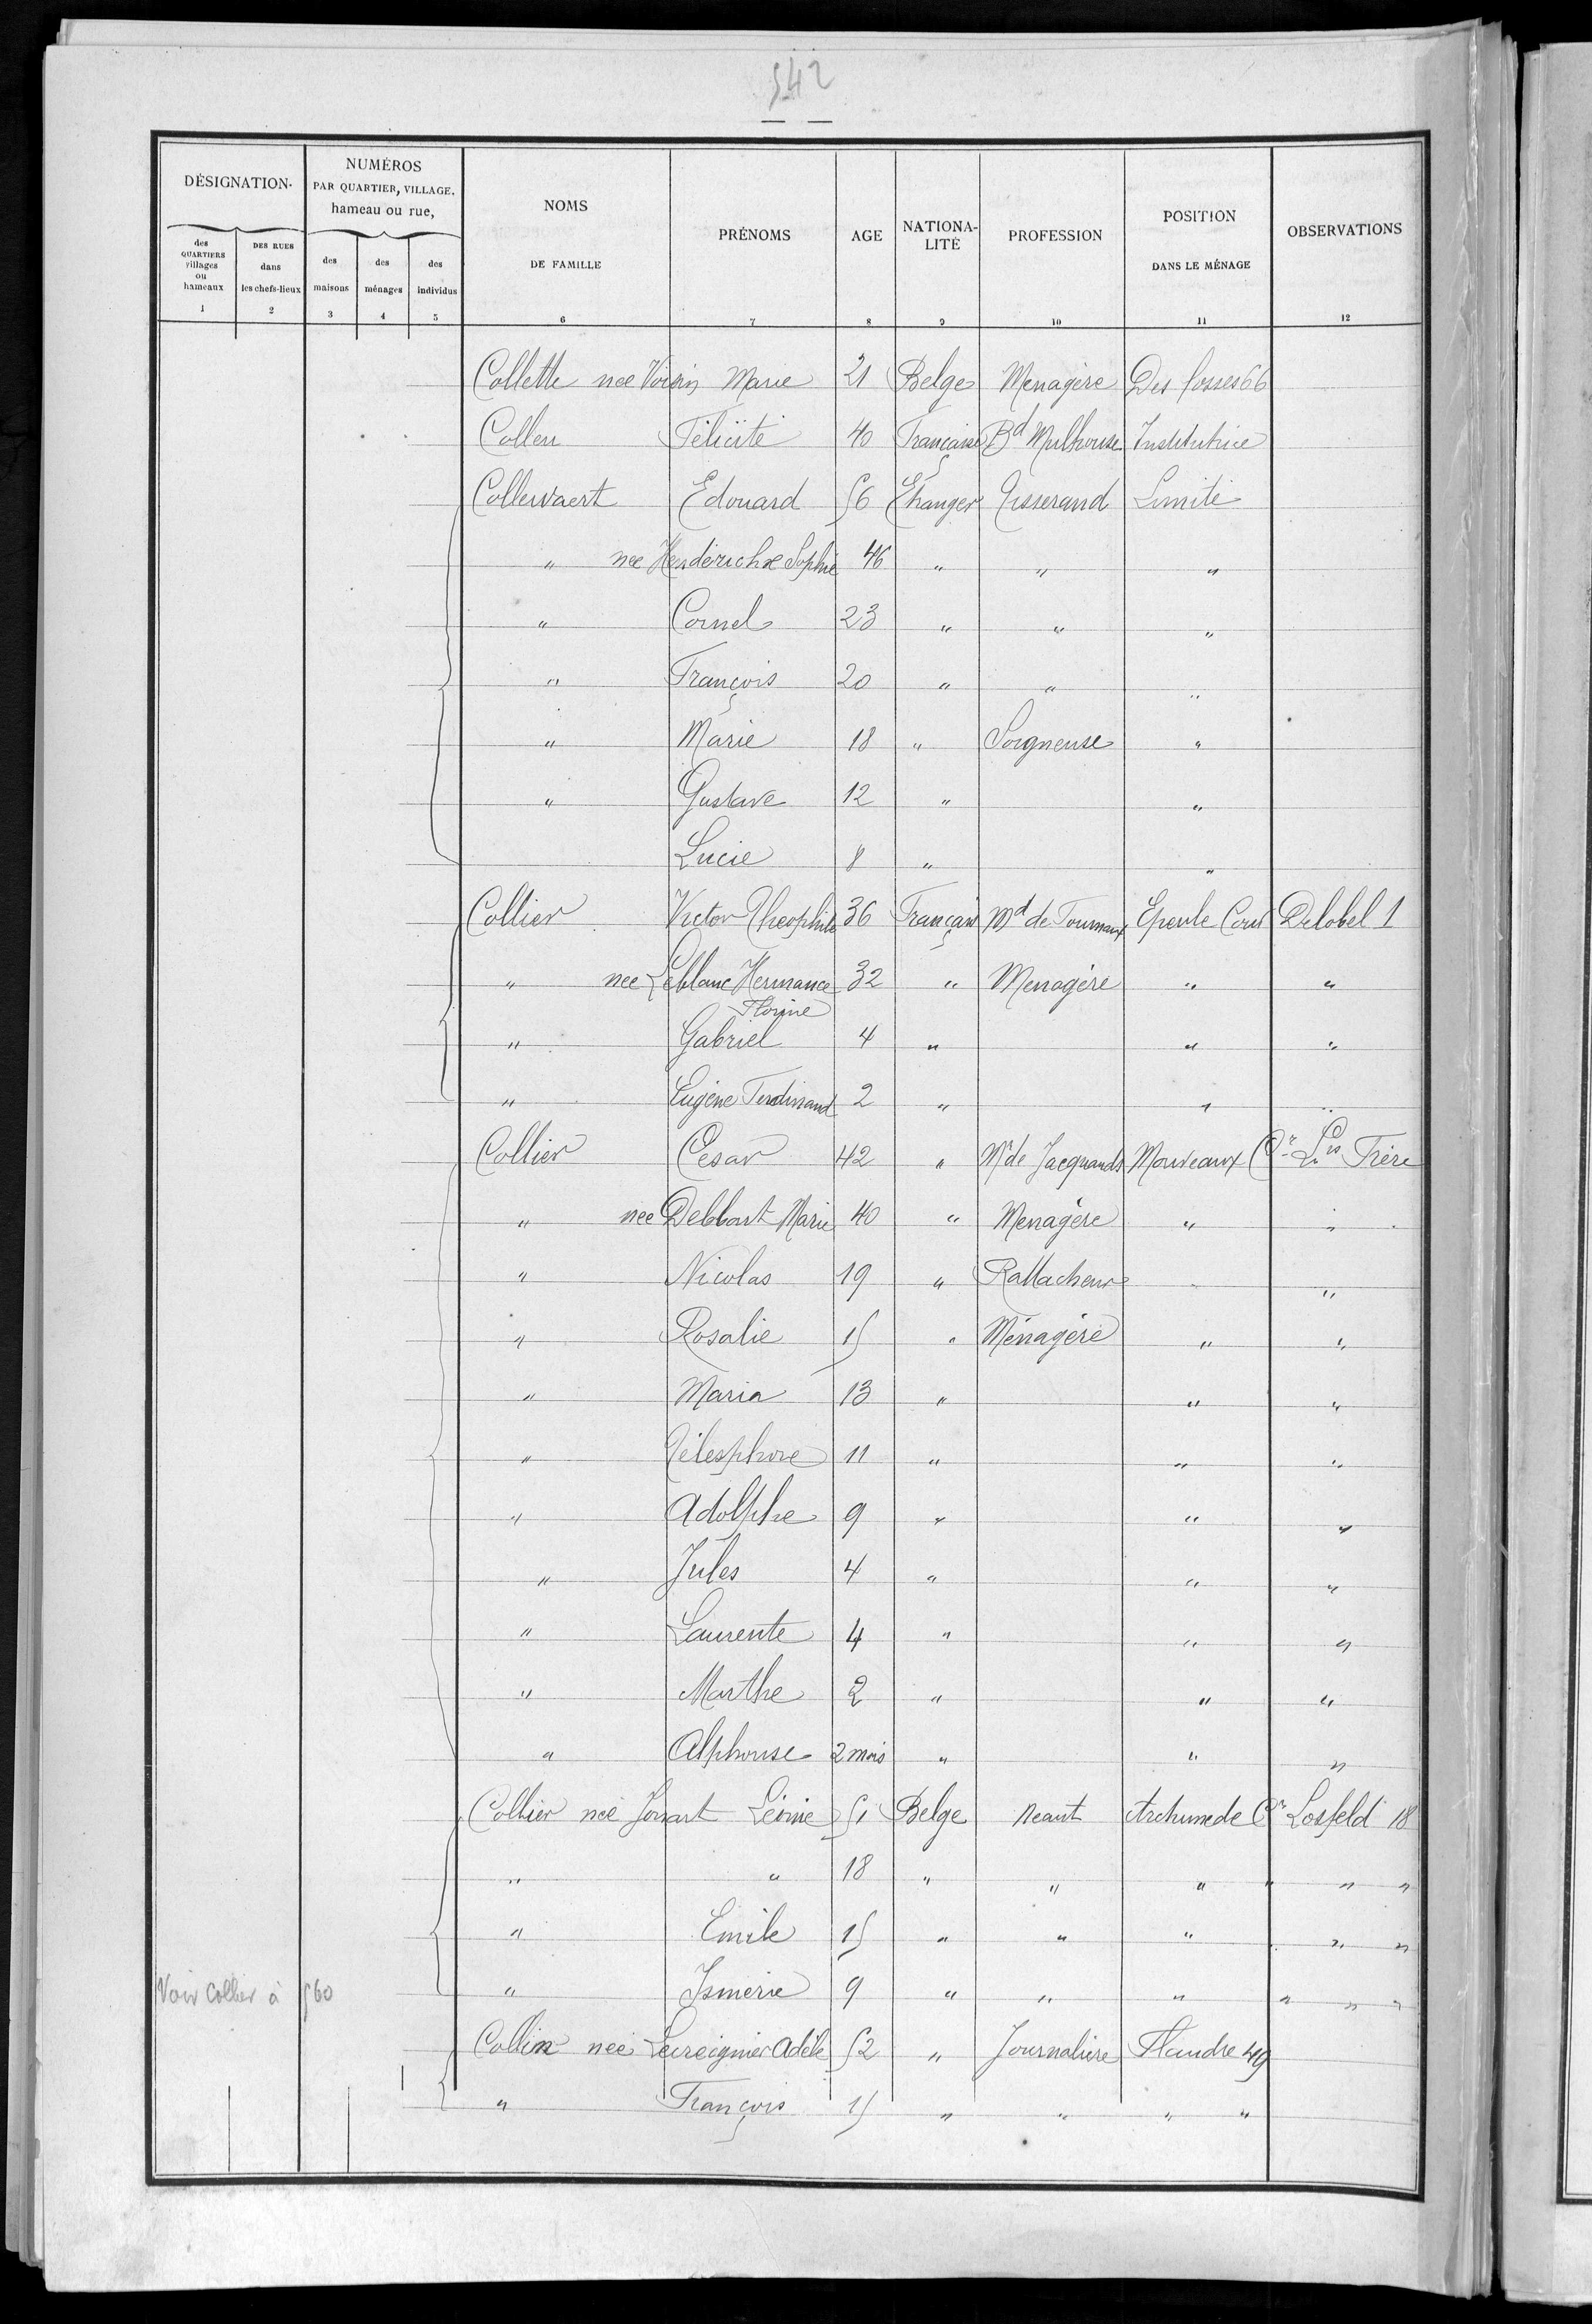 542
DÉSIGNATION.
NUMÉROS
PAR QUARTIER, VILLAGE.
hameau ou rue,
NOMS
DE FAMILLE
PRÉNOMS
AGE
NATIONA-
LITÉ
PROFESSION
POSITION
DANS LE MÉNAGE
OBSERVATIONS
des
QUARTIERS
villages
ou
hameaux
DES RUES
dans
les chefs-lieux
des
maisons
des
ménages
des
individus
1 2 3 4 5 6 7 8 9 10 11 12
Collette nee Voisin Marie 21 Belge Menagère Des fosses 66
Collen Félicité 40 Française Bd Mulhouse Institutrice
Collewaert Edouard 56 Etranger Tisserand Limite
" nee Hendérichse Sophie 46 " " "
" Cornel 23 " " "
" François 20 " " "
" Marie 18 " Soigneuse "
" Gustave 12 " "
Lucie 8 " "
Collier Victor Theophile 36 Français Md de Tourneaux Epeule Cour Delobel 1
" nee Leblanc Hermance 32 " Menagère " "
Florine
" Gabriel 4 " " "
" Eugène Ferdinand 2 " " "
Collier Cesar 42 " Md de Jacquards Mouveaux Cr Lis Frère
" nee Debbart Marie 40 " Menagère " "
" Nicolas 19 " Rattacheur "
" Rosalie 15 " Ménagère " "
" Maria 13 " " "
" Télesphore 11 " " "
" Adolphe 9 " " "
" Jules 4 " " "
" Laurente 4 " " "
" Marthe 2 " " "
" Alphonse 2 mois " " "
Collier née Jonart Léonie 51 Belge neant Archimede Cr Losfeld 18
" " 18 " " " " " "
" Emile 15 " " " " "
Voir Collier à 560
" Ismérie 9 " " " " " "
Collin née Lecreignier Adèle 52 " Journalière Flandre 49
" François 15 " " " "